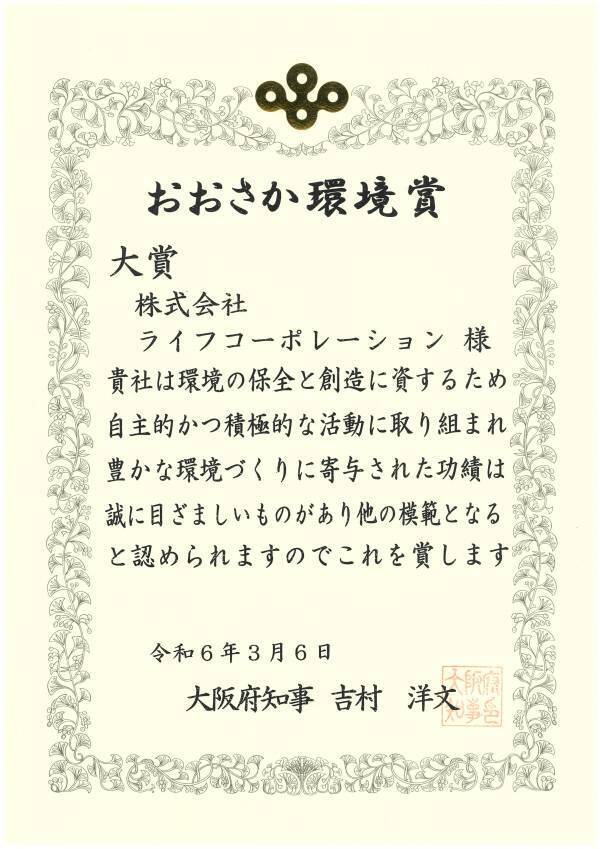 おおさか環境賞
大賞
株式会社
ライフコーポレーション 様
貴社は環境の保全と創造に資するため
自主的かつ積極的な活動に取り組まれ
豊かな環境づくりに寄与された功績は
誠に目ざましいものがあり他の模範となる
と認められますのでこれを賞します
令和6年3月6日
大阪府知事 吉村 洋文
大阪府
知事印